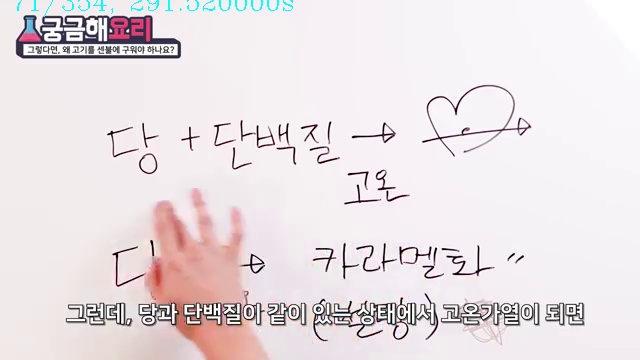 71/354, 291.520000s
궁금해요리
그렇다면, 왜 고기를 센불에 구워야 하나요?
당 + 단백질 →
고온
카라멜화 〃
그런데, 당과 단백질이 같이 있는 상태에서 고온가열이 되면